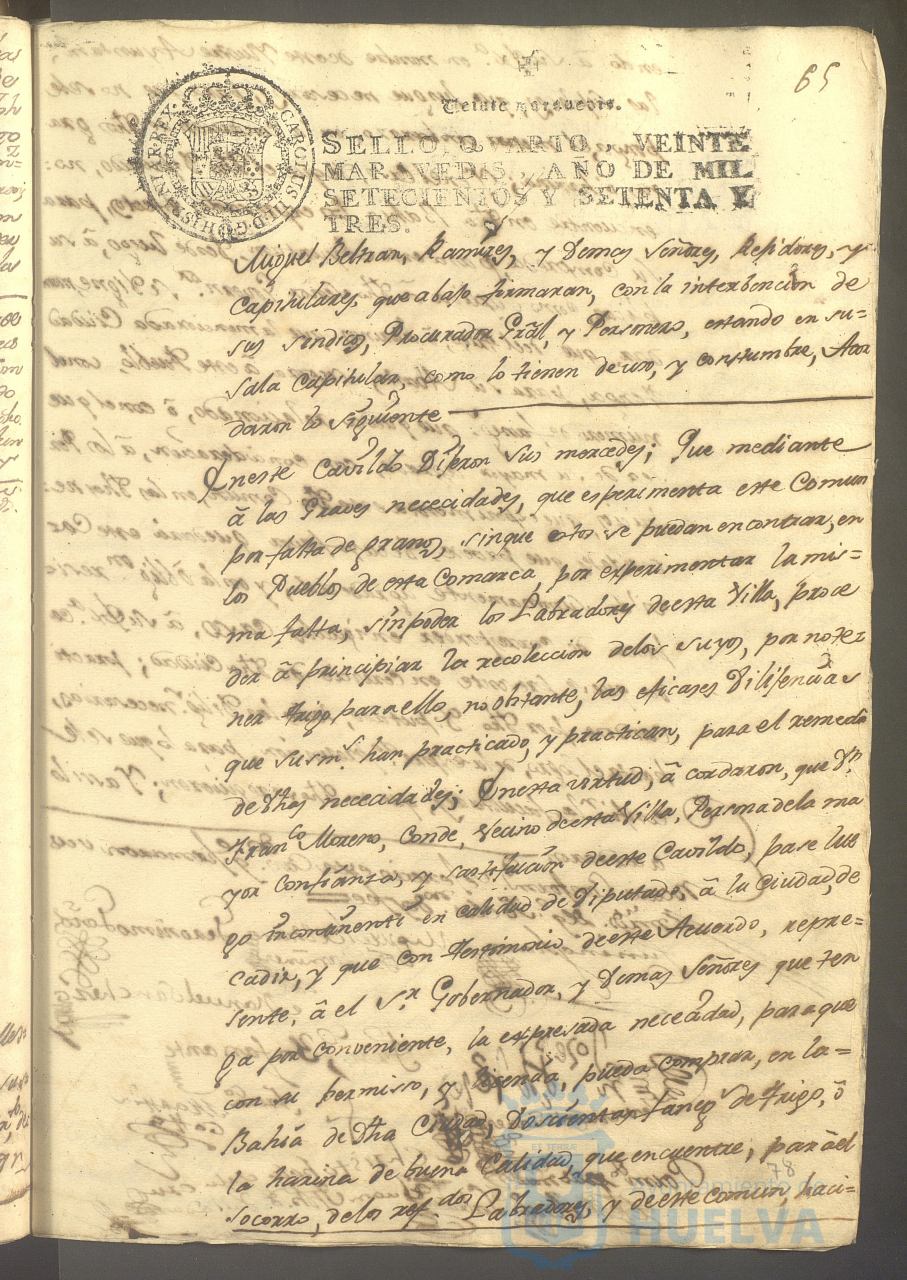 65
Veinte maravedis.
CAROLUS III D G HISPANIAR REX
SELLO QVARTO, VEINTE
MARAVEDIS, AÑO DE MIL
SETECIENTOS Y SETENTA Y
TRES.
Miguel Beltran, Ramires, y Demas Señores, Rexidores, y
Capitulares, que abajo firmaran, con la interbencion de
sus sindicos, Procurador Gral, y Personero, estando en su=
sala Capitular, como lo tienen de uso, y constumbre, Acor
daron lo siguiente
Eneste Cavildo Dijeron sus mercedes; Que mediante
â las Graves nececidades, que esperimenta este Comun
por falta de granos, sin que estos se puedan encontrar, en
los Pueblos de esta Comarca, por experimentar la mis=
ma falta, sin poder los Labradores de esta Villa, proce
der â principiar la recoleccion delos suyos, por no te
ner trigo para ello, no obstante, las eficases Dilijencias
que sus ms. han practicado, y practican, para el remedio
de dhas nececidades; Enesta virtud, âcordaron, que Dn.
Franco. Moreno, Conde, Vecino de esta Villa, Persona dela ma
yor confianza, y sastifacion de este Cavildo, pase lue
go incontinenti en calidad de Diputado, â la Ciudad, de
Cadiz, y que con testimonio de este Acuerdo, repre=
sente, â el Sr. Gobernador, y Demas Señores que ten
ga por conveniente, la expresada nececidad, para que
con su permiso, y licencia, pueda comprar, en la=
Bahia de dha Ciudad, Doscientas fanegs. de trigo, ô
la harina de buena Calidad, que encuentre, para el
socorro, de los refdos. Labradores, y de este comun, haci=
78
Ayuntamiento de
HUELVA